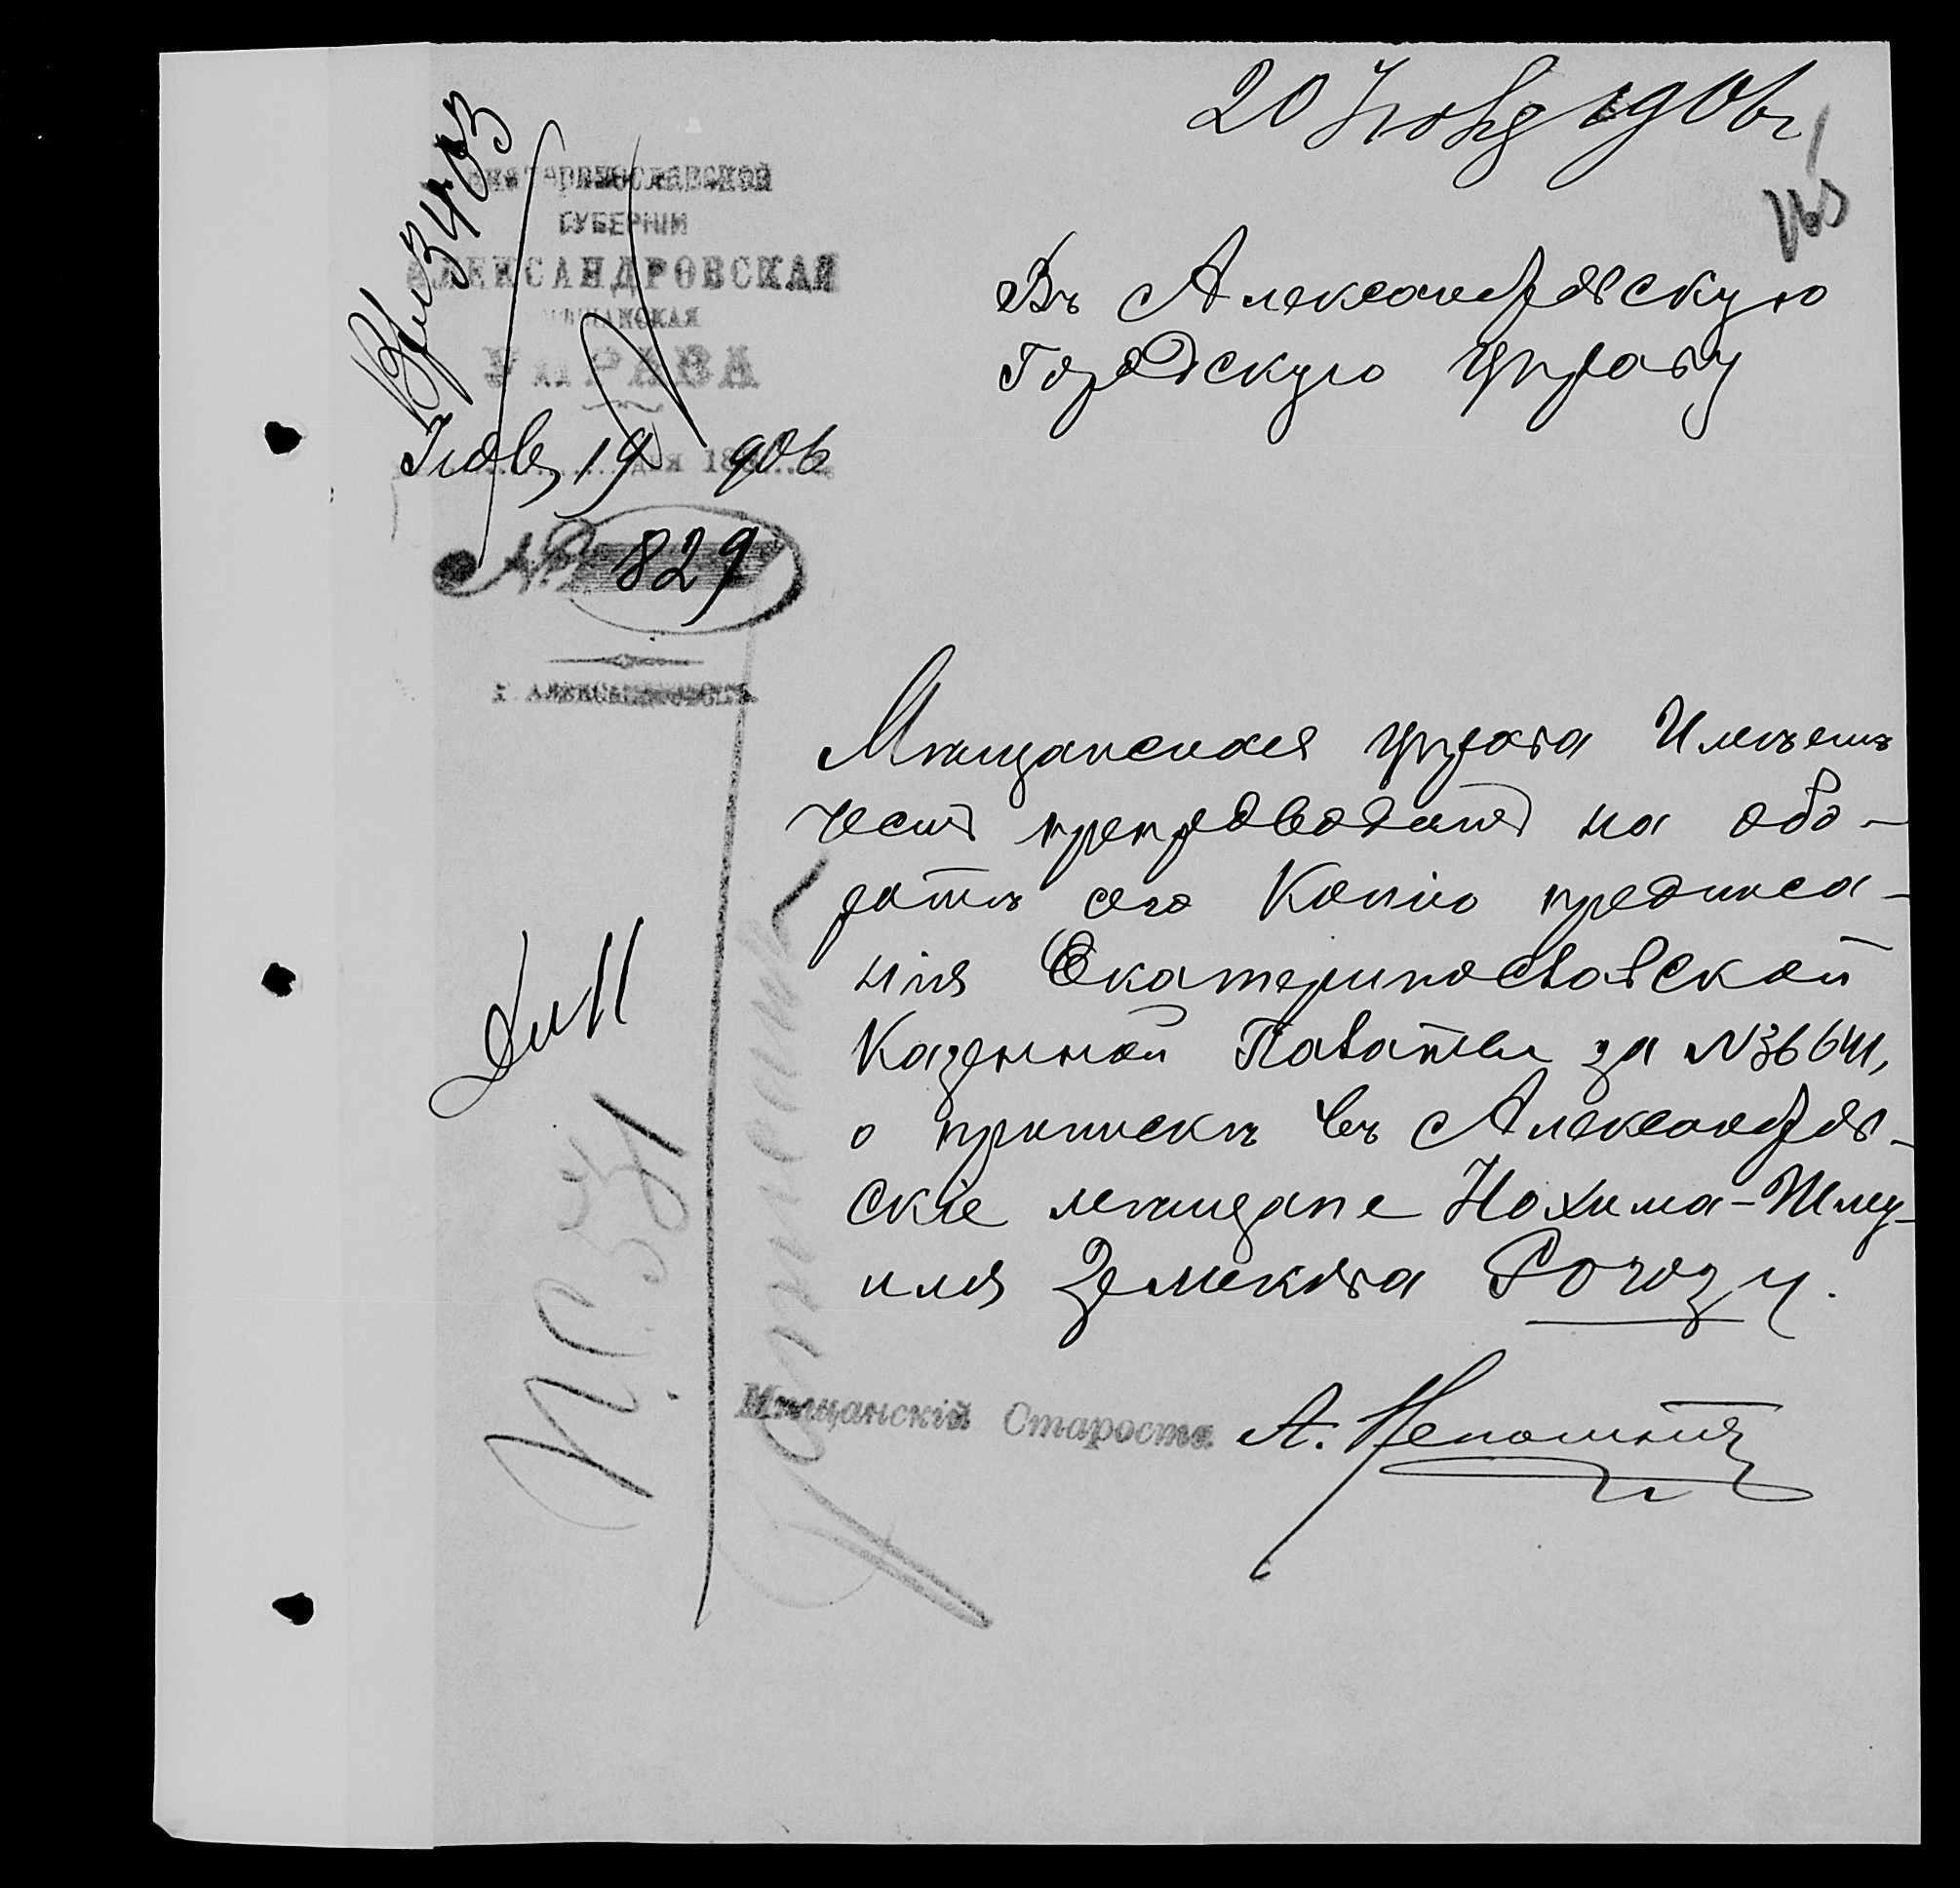 20 Нояб 1906 г
165
Вх 3403
Екатеринославской
ГУБЕРНІИ
АЛЕКСАНДРОВСКАЯ
МѢЩАНСКАЯ
УПРАВА
Нояб 19 дня 1906
№ 829
г. АЛЕКСАНДРОВСКЪ
Въ Александровскую
Городскую Управу
Мѣщанская управа Имѣетъ
честь препроводить на обо-
ротѣ сего Копію предписа-
нія Екатеринославской
Казенной Палаты за №36641,
о припискѣ въ Александров-
скіе мѣщане Нохима-Шму-
иля Земекова Рогозу.
Мѣщанскій Староста А.